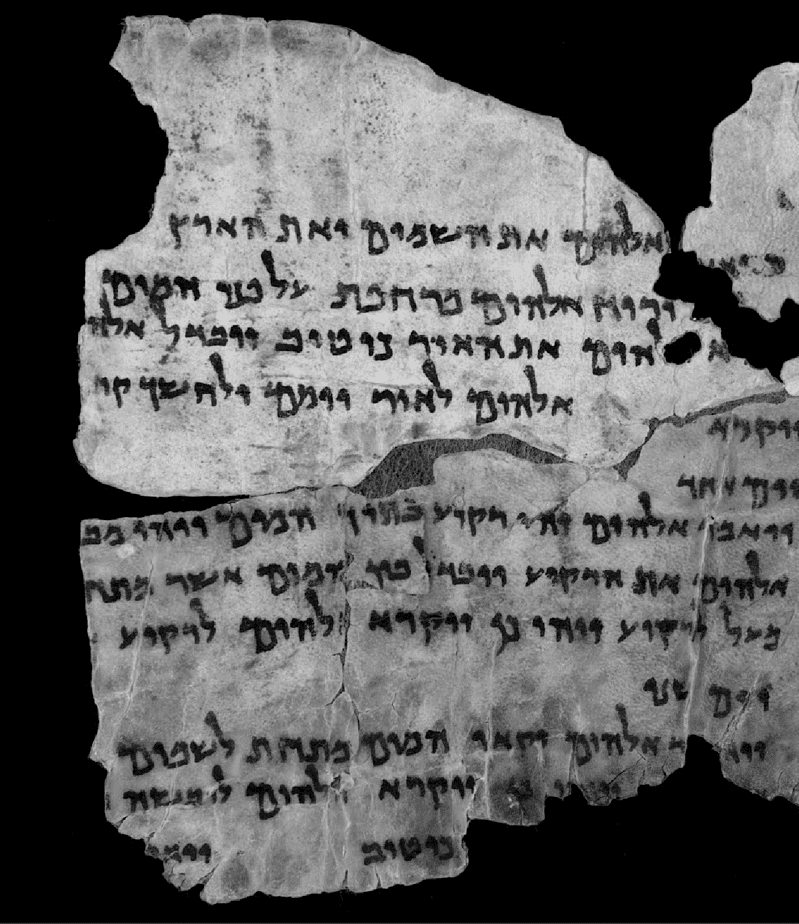 אלהים את השמים ואת הארץ
ורוח אלהים מרחפת על פני המים
להים את האור כי טוב ויבדל אלה
אלהים לאור יומם ולחשך קר
ויקרא
יום אחד
ויאמר אלהים יהי רקיע בתוך המים ויהי מב
אלהים את הרקיע ויבדל בין המים אשר מתח
מעל לרקיע ויהי כן ויקרא אלהים לרקיע
יום שני
אלהים יקאו המים מתחת לשמים
ויקרא אלהים ליבשה
כי טוב ויאמ